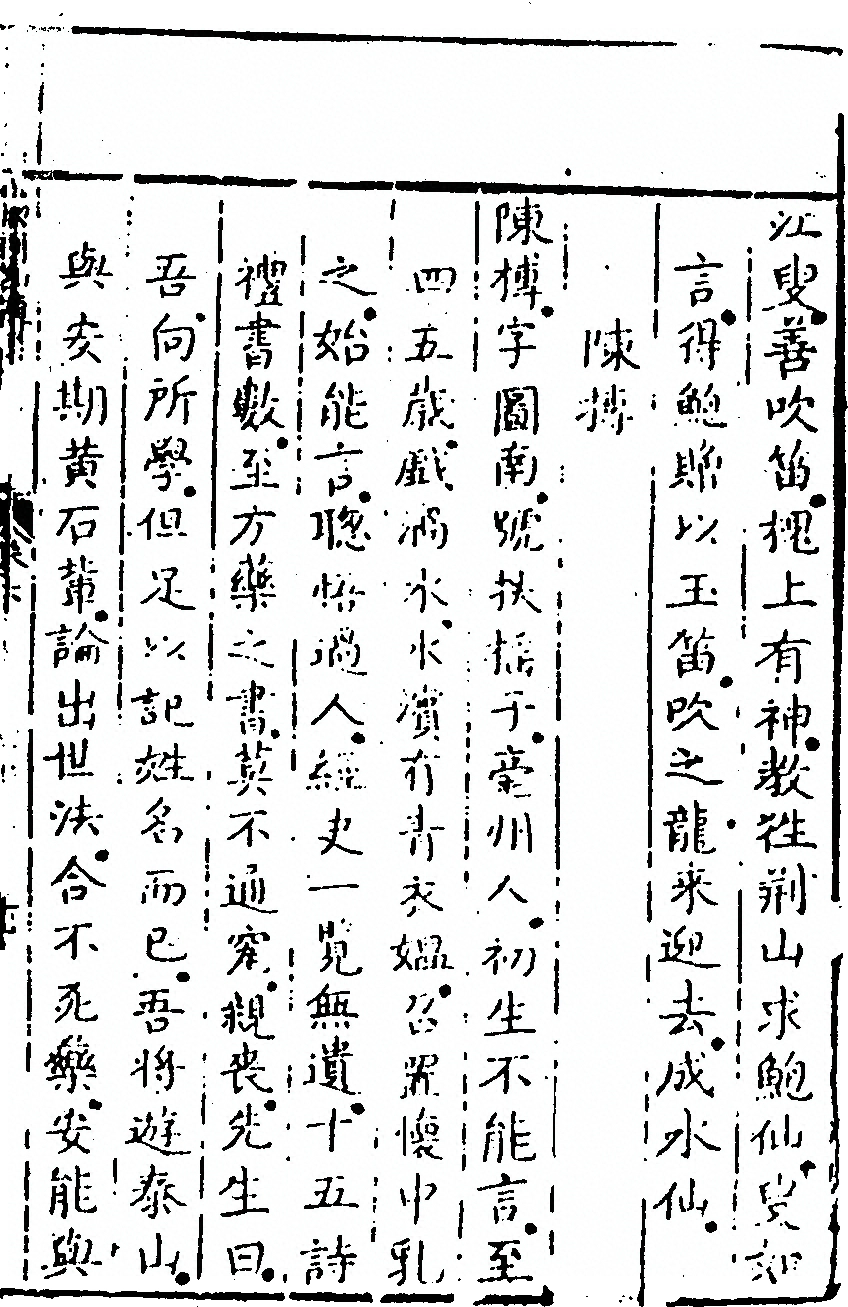 江叟善吹笛槐上有神教往荊山求鮑仙叟如
言得鮑賜以玉笛吹之龍來迎去成水仙
陳摶
陳摶字圖南號扶搖子亳州人初生不能言至
四五歲戲渦水水濱有青衣媼召置懷中乳
之始能言聰悟過人經史一覽無遺十五詩
禮書數至方藥之書莫不通究親喪先生曰
吾向所學但足以記姓名而已吾將遊泰山
與安期黄石輩論出世法合不死藥安能與